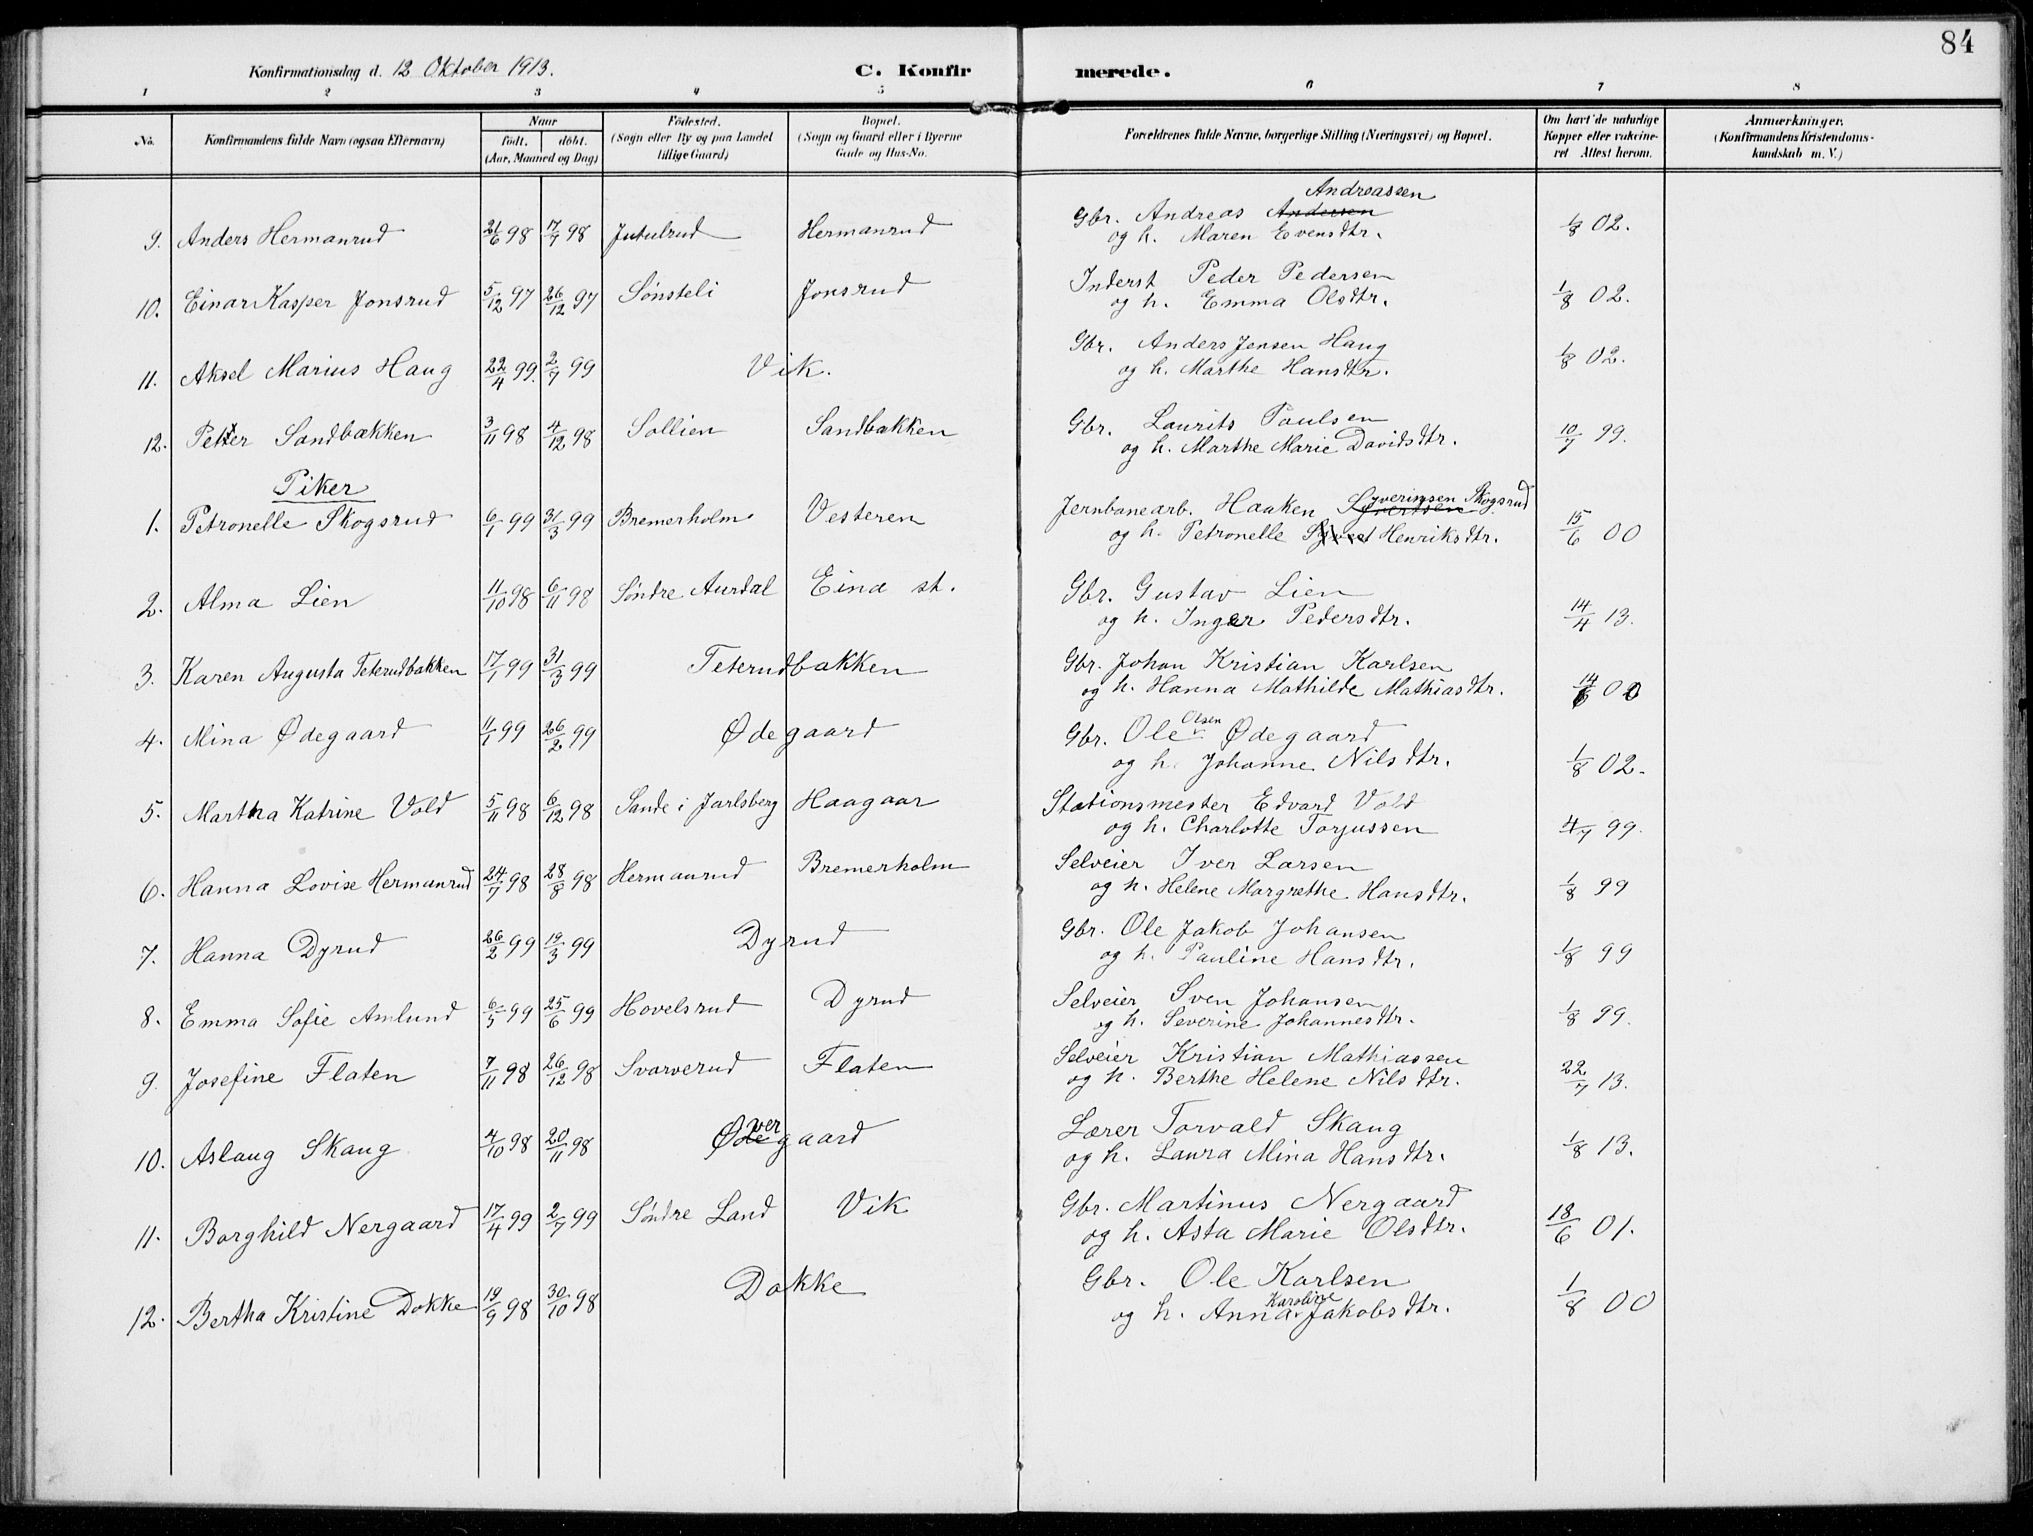 84
Konfirmationsdag d. 12 Oktober 1913. C. Konfirmerede.
1 2 3 4 5 6 7 8
No. Konfirmandens fulde Navn (ogsaa Efternavn) Naar født. døbt. (Aar, Maaned og Dag) Fødested. (Sogn eller By og paa Landet tillige Gaard) Bopæl. (Sogn og Gaard eller i Byerne Gade og Hus-No. Forældrenes fulde Navne, borgerlige Stilling (Næringsvei) og Bopæl. Om havt de naturlige Kopper eller vakcineret Attest herom. Anmærkninger. (Konfirmandens Kristendomskundskab m. V.)
9. Anders Hermanrud 21/6 98 17/7 98 Jutulrud Hermanrud Gbr. Andreas Andersen Andreassen 1/8 02.
og h. Maren Evensdtr.
10. Einar Kasper Jonsrud 5/12 97 26/12 97 Sønsteli Jonsrud Inderst Peder Pedersen 1/8 02.
og h. Emma Olsdtr.
11. Aksel Marius Haug 22/4 99. 2/7 99 Vik. Gbr. Anders Jensen Haug 1/8 02.
og h. Marthe Hansdtr.
12. Petter Sandbakken 3/11 98 4/12 98 Sollien Sandbakken Gbr. Laurits Paulsen 10/7 99.
og h. Marthe Marie Davidsdtr.
Piker
1. Petronelle Skogsrud 6/1 99 31/3 99 Bremerholm Vesteren Jernbanearb. Haaken Syverinsen Skogsrud 15/6 00
og h. Petronelle Henriksdtr.
2. Alma Lien 11/10 98 6/11 98 Søndre Aurdal Eina st. Gbr. Gustav Lien 14/4 13.
og h. Inger Pedersdtr.
3. Karen Augusta Teterudbakken 17/1 99 31/3 99 Teterudbakken Gbr. Johan Kristian Karlsen 14/6 00
og h. Hanna Mathilde Mathiasdtr.
4. Mina Ødegaard 11/1 99 26/2 99 Ødegaard Gbr. Ole Olsen Ødegaard 1/8 02.
og h. Johanne Nilsdtr.
5. Martha Katrine Vold 5/11 98 6/12 98 Sande i Jarlsberg Haagaar Stationsmester Edvard Vold 4/7 99.
og h. Charlotte Torjussen
6. Hanna Lovise Hermanrud 24/7 98 28/8 98 Hermanrud Bremerholm Selveier Iver Larsen 1/8 99
og h. Helene Margrethe Hansdtr.
7. Hanna Dyrud 26/2 99 19/3 99 Dyrud Gbr. Ole Jakob Johansen 1/8 99
og h. Pauline Hansdtr.
8. Emma Sofie Amlund 6/5 99 25/6 99 Hovelsrud Dyrud Selveier Sven Johansen 1/8 99.
og h. Severine Johannesdtr.
9. Josefine Flaten 7/11 98 26/12 98 Svarverud Flaten Selveier Kristian Mathiassen 22/7 13.
og h. Berthe Helene Nilsdtr.
10. Aslaug Skaug 4/10 98 20/11 98 Øvergaard Lærer Torvald Skaug 1/8 13.
og h. Laura Mina Hansdtr.
11. Borghild Nergaard 17/4 99 2/7 99 Søndre Land Vik Gbr. Martinus Nergaard 18/6 01.
og h. Asta Marie Olsdtr.
12. Bertha Kristine Dokke 19/9 98 30/10 98 Dokke Gbr. Ole Karlsen 1/8 00
og h. Anna Karoline Jakobsdtr.